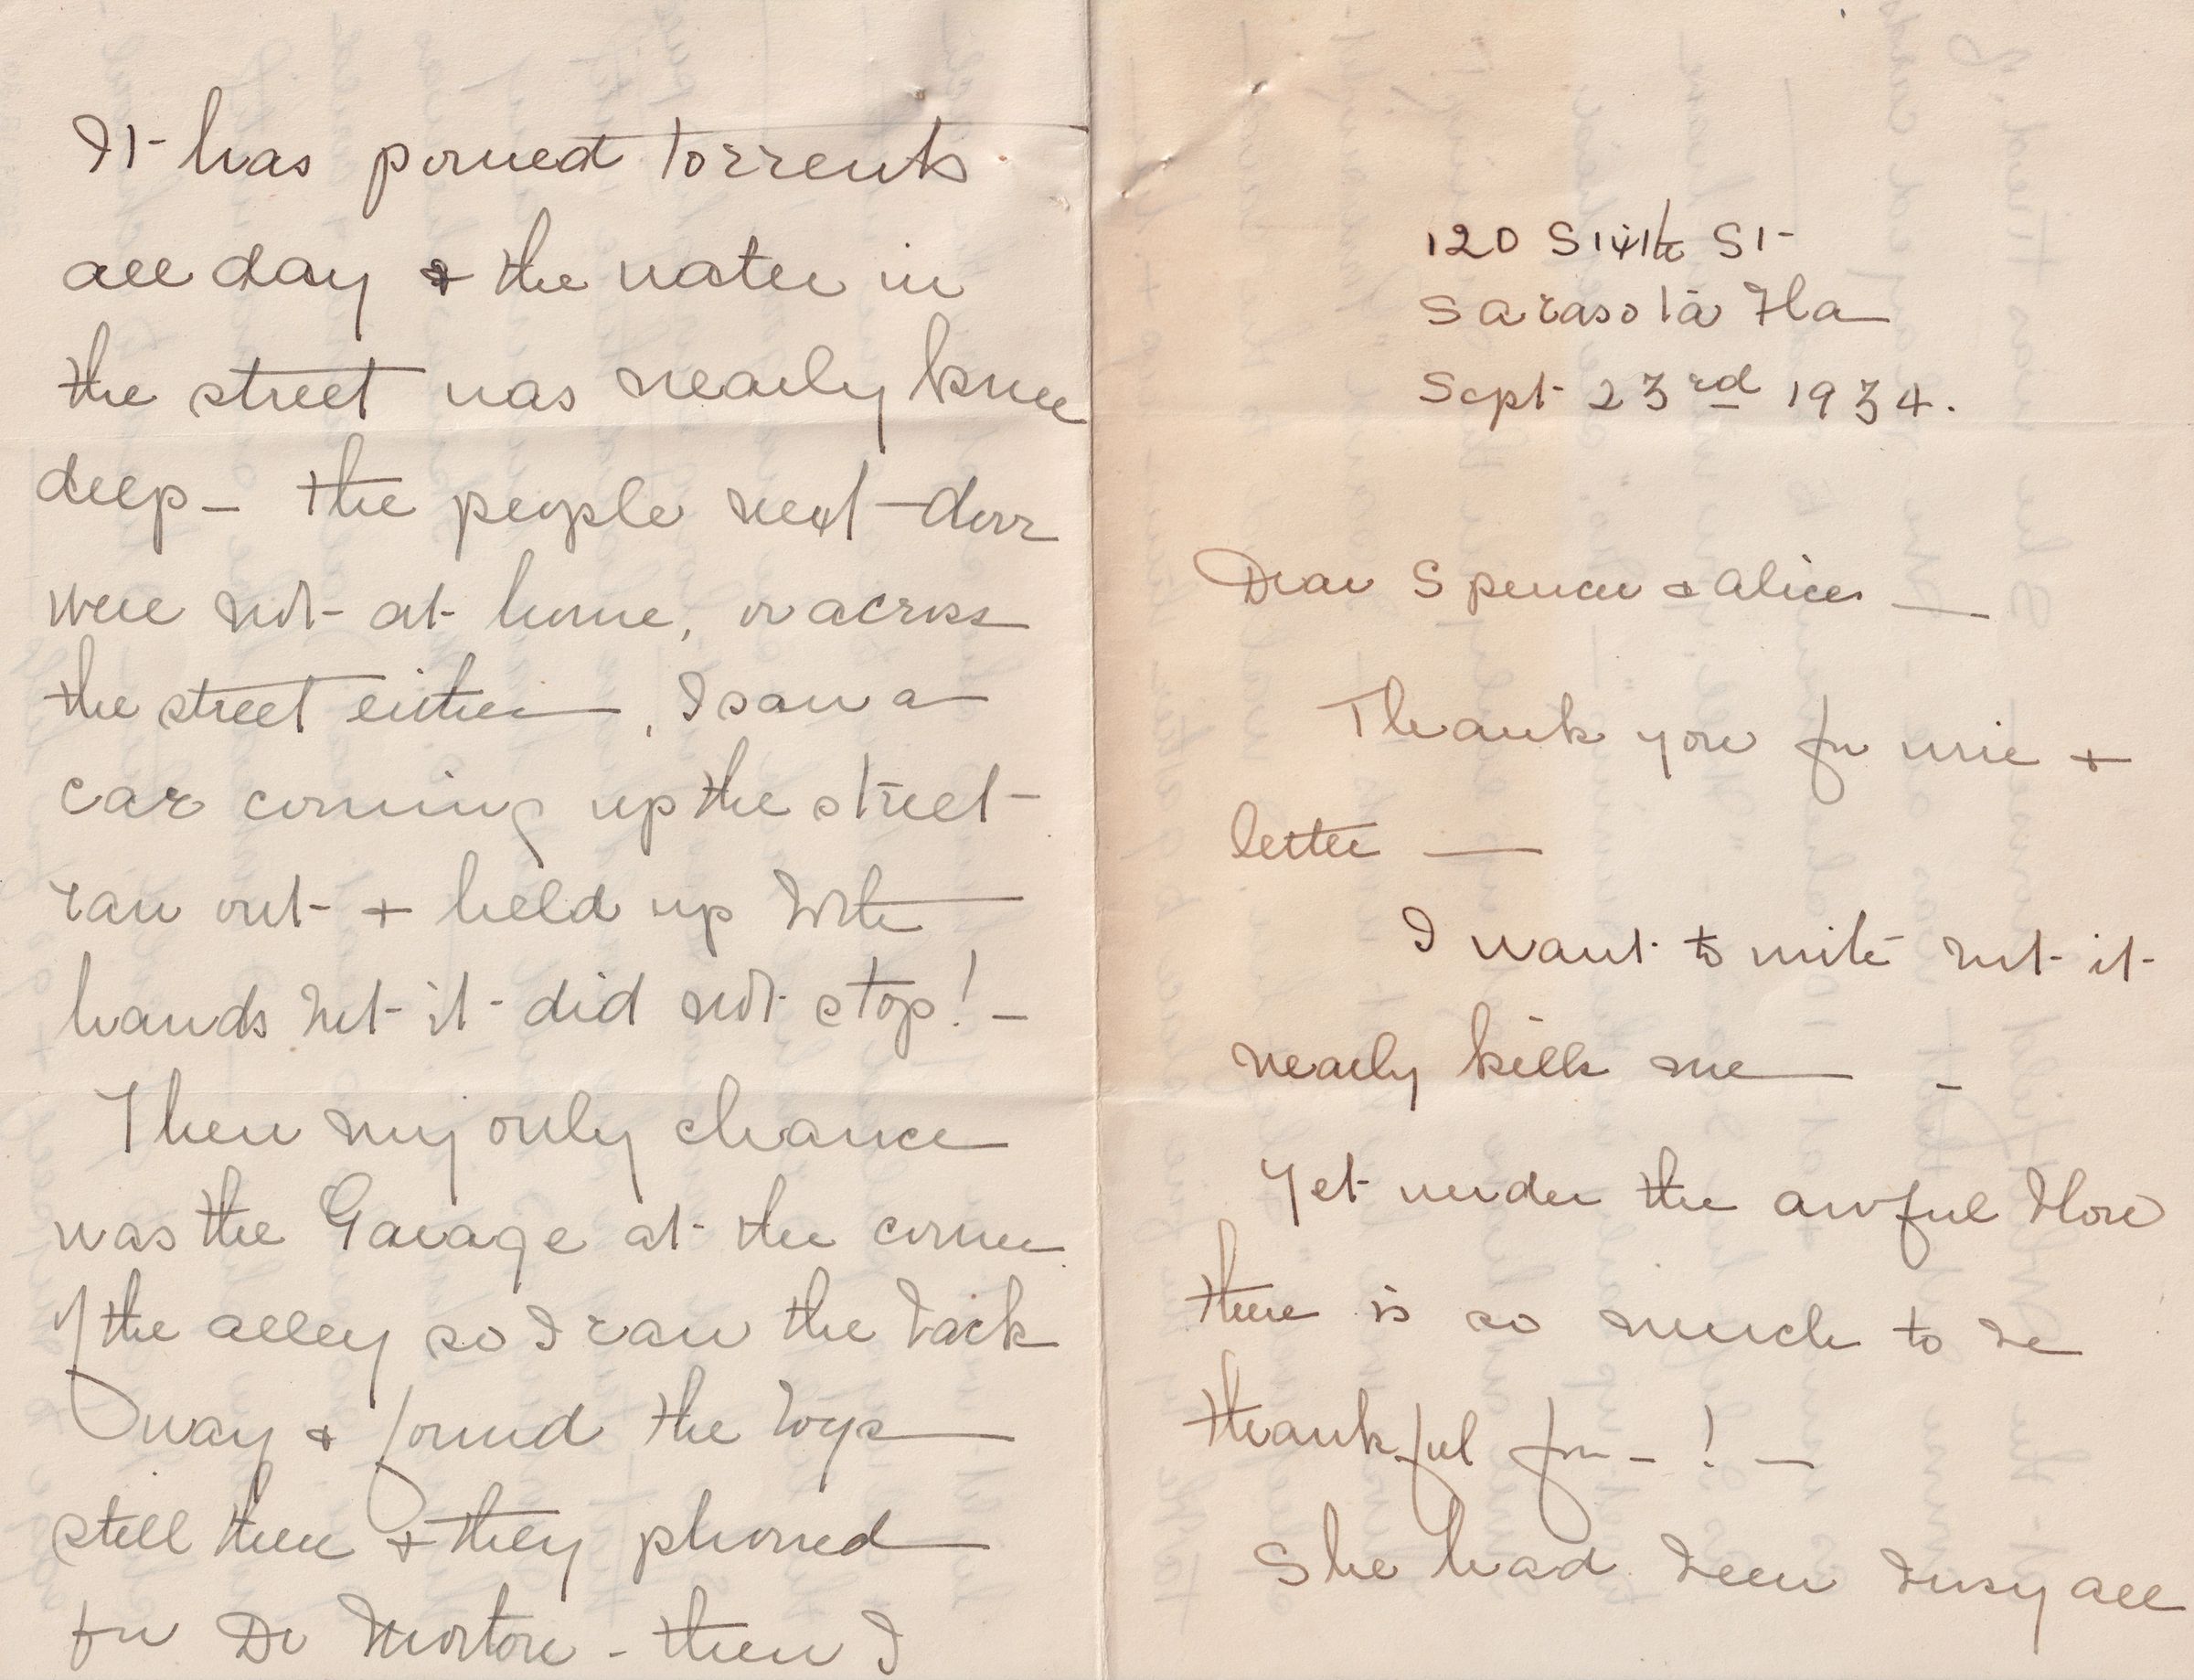 120 Sixth St
Sarasota Fla
Sept 23rd 1934.
Dear Spencer & Alice —
Thank you for wire +
letter —
I want to write but it
nearly kills me — -
Yet under the awful blow
there is so much to be
thankful for - ! -
She had been busy all
It has poured torrents
all day & the water in
the street was nearly knee
deep - the people next door
were not at home, or across
the street either, I saw a
car coming up the street
ran out + held up both
hands but it did not stop! -
Then my only chance
was the Garage at the corner
of the alley so I ran the back
way & found the boys
still there & they phoned
for Dr Morton - then I